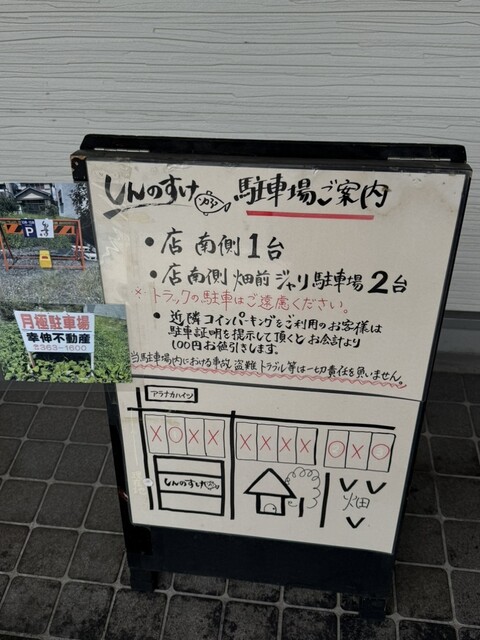 しんのすけ 駐車場ご案内
• 店南側1台
• 店南側畑前ジャリ駐車場2台
※トラックの駐車はご遠慮ください。
• 近隣コインパーキングをご利用のお客様は
駐車証明を提示して頂くとお会計より
100円お値引きします。
当駐車場内における事故盗難トラブル等は一切責任を負いません。
P
月極駐車場
幸伸不動産
☎363-1600
アラナカハイツ
X O X X X X X X O X O
しんのすけ
畑